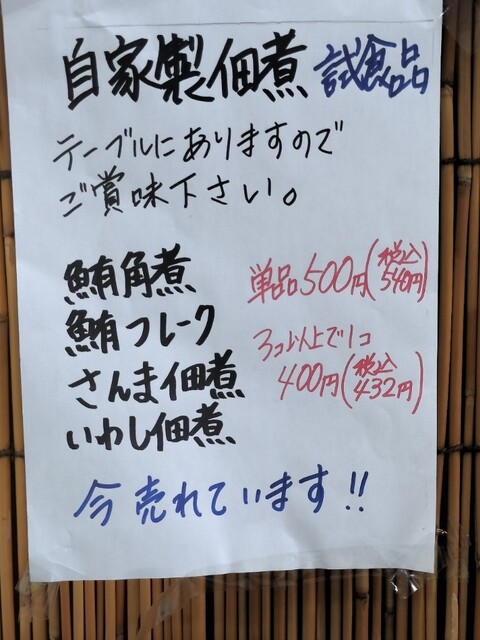 自家製佃煮 試食品
テーブルにありますので
ご賞味下さい。
鮪角煮
鮪フレーク
さんま佃煮
いわし佃煮
単品500円(税込540円)
3コ以上で1コ
400円(税込432円)
今売れています!!